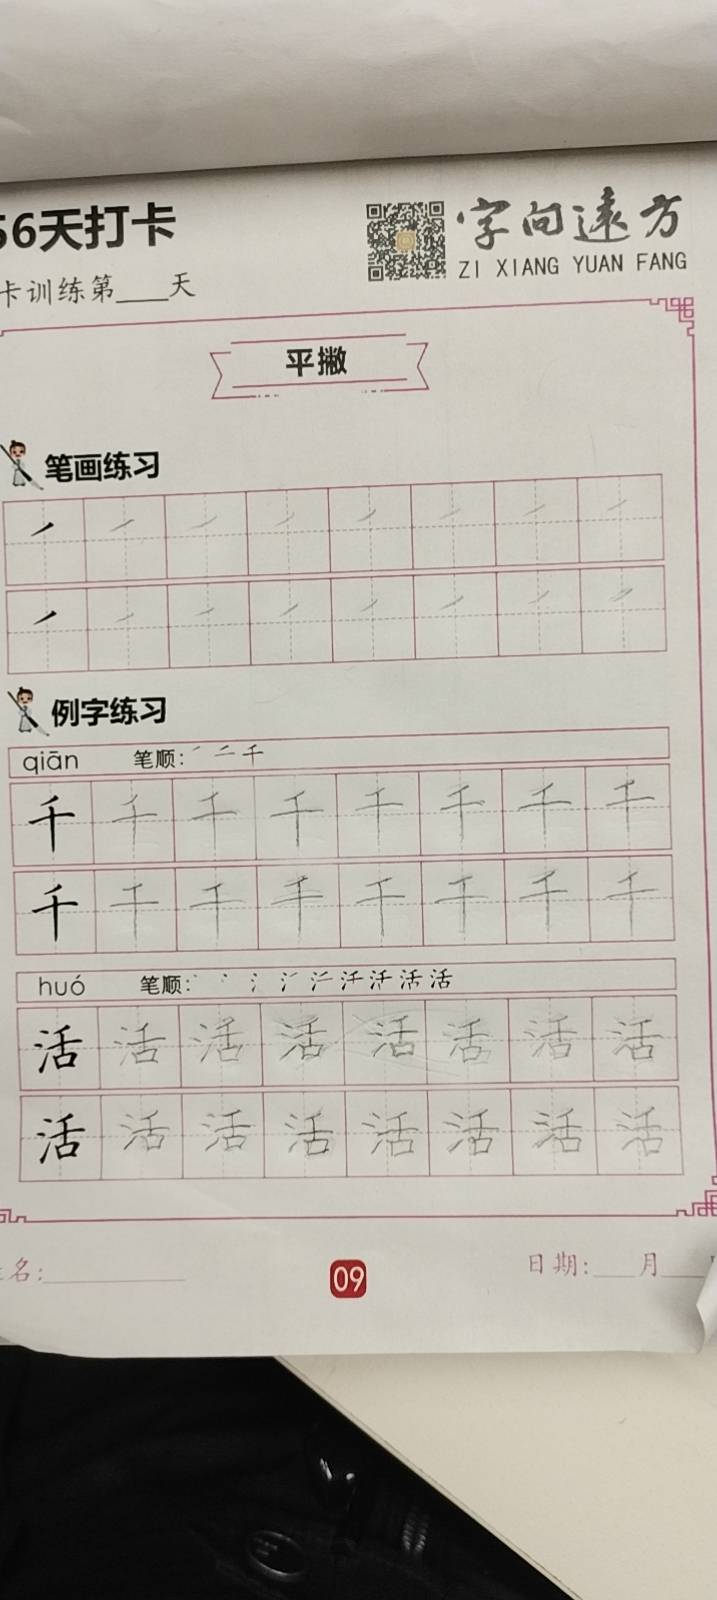 56天打卡
字向远方
ZI XIANG YUAN FANG
卡训练第____天
平撇
笔画练习
例字练习
qiān 笔顺: ㇒ 二 千
千 千 千 千 千 千 千 千
千 千 千 千 千 千 千 千
huó 笔顺: 活
活 活 活 活 活 活 活 活
活 活 活 活 活 活 活 活
名:________
09
日期:___月___